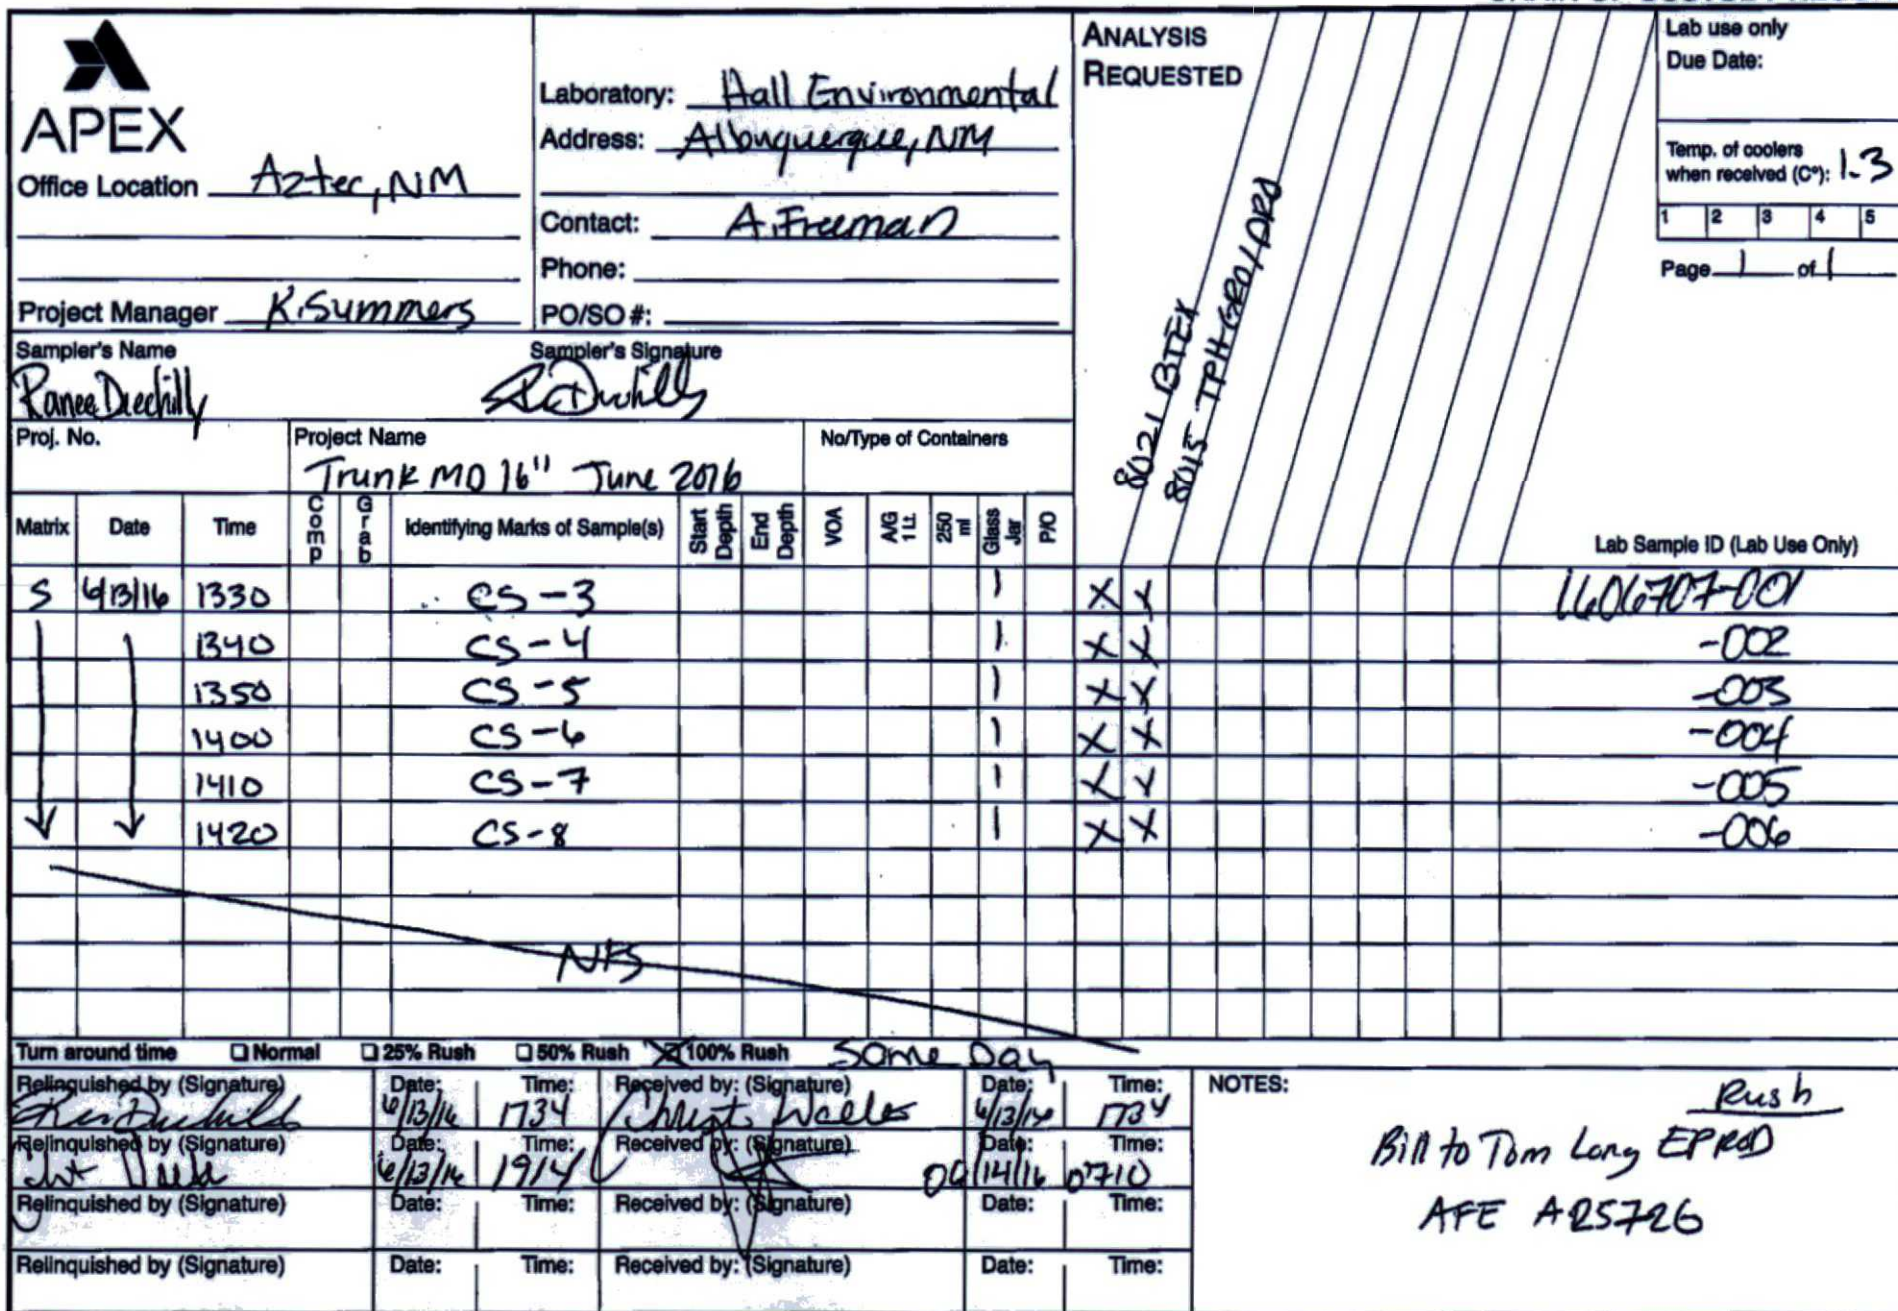 APEX
Office Location Aztec, NM
Project Manager K. Summers
Laboratory: Hall Environmental
Address: Albuquerque, NM
Contact: A. Freeman
Phone:
PO/SO #:
ANALYSIS
REQUESTED
8021 BTEX
8015 TPH GRO/DRO
Lab use only
Due Date:
Temp. of coolers
when received (C°): 1.3
1 2 3 4 5
Page 1 of 1
Sampler's Name
Sampler's Signature
Ranee
Proj. No.
Project Name
No/Type of Containers
Trunk MO 16" June 2016
Matrix Date Time Comp Grab Identifying Marks of Sample(s) Start Depth End Depth VOA A/G 1 Lt. 250 ml Glass Jar P/O
Lab Sample ID (Lab Use Only)
S 6/13/16 1330 CS-3 1 X X 1606707-001
1340 CS-4 1 X X -002
1350 CS-5 1 X X -003
1400 CS-6 1 X X -004
1410 CS-7 1 X X -005
1420 CS-8 1 X X -006
NFS
Turn around time Normal 25% Rush 50% Rush X 100% Rush Same Day
Relinquished by (Signature) Date: 6/13/16 Time: 1734 Received by: (Signature) Date: 6/13/16 Time: 1734
Relinquished by (Signature) Date: 6/13/16 Time: 1914 Received by: (Signature) Date: 06/14/16 Time: 0710
Relinquished by (Signature) Date: Time: Received by: (Signature) Date: Time:
Relinquished by (Signature) Date: Time: Received by: (Signature) Date: Time:
NOTES:
Rush
Bill to Tom Long EPROD
AFE A25726